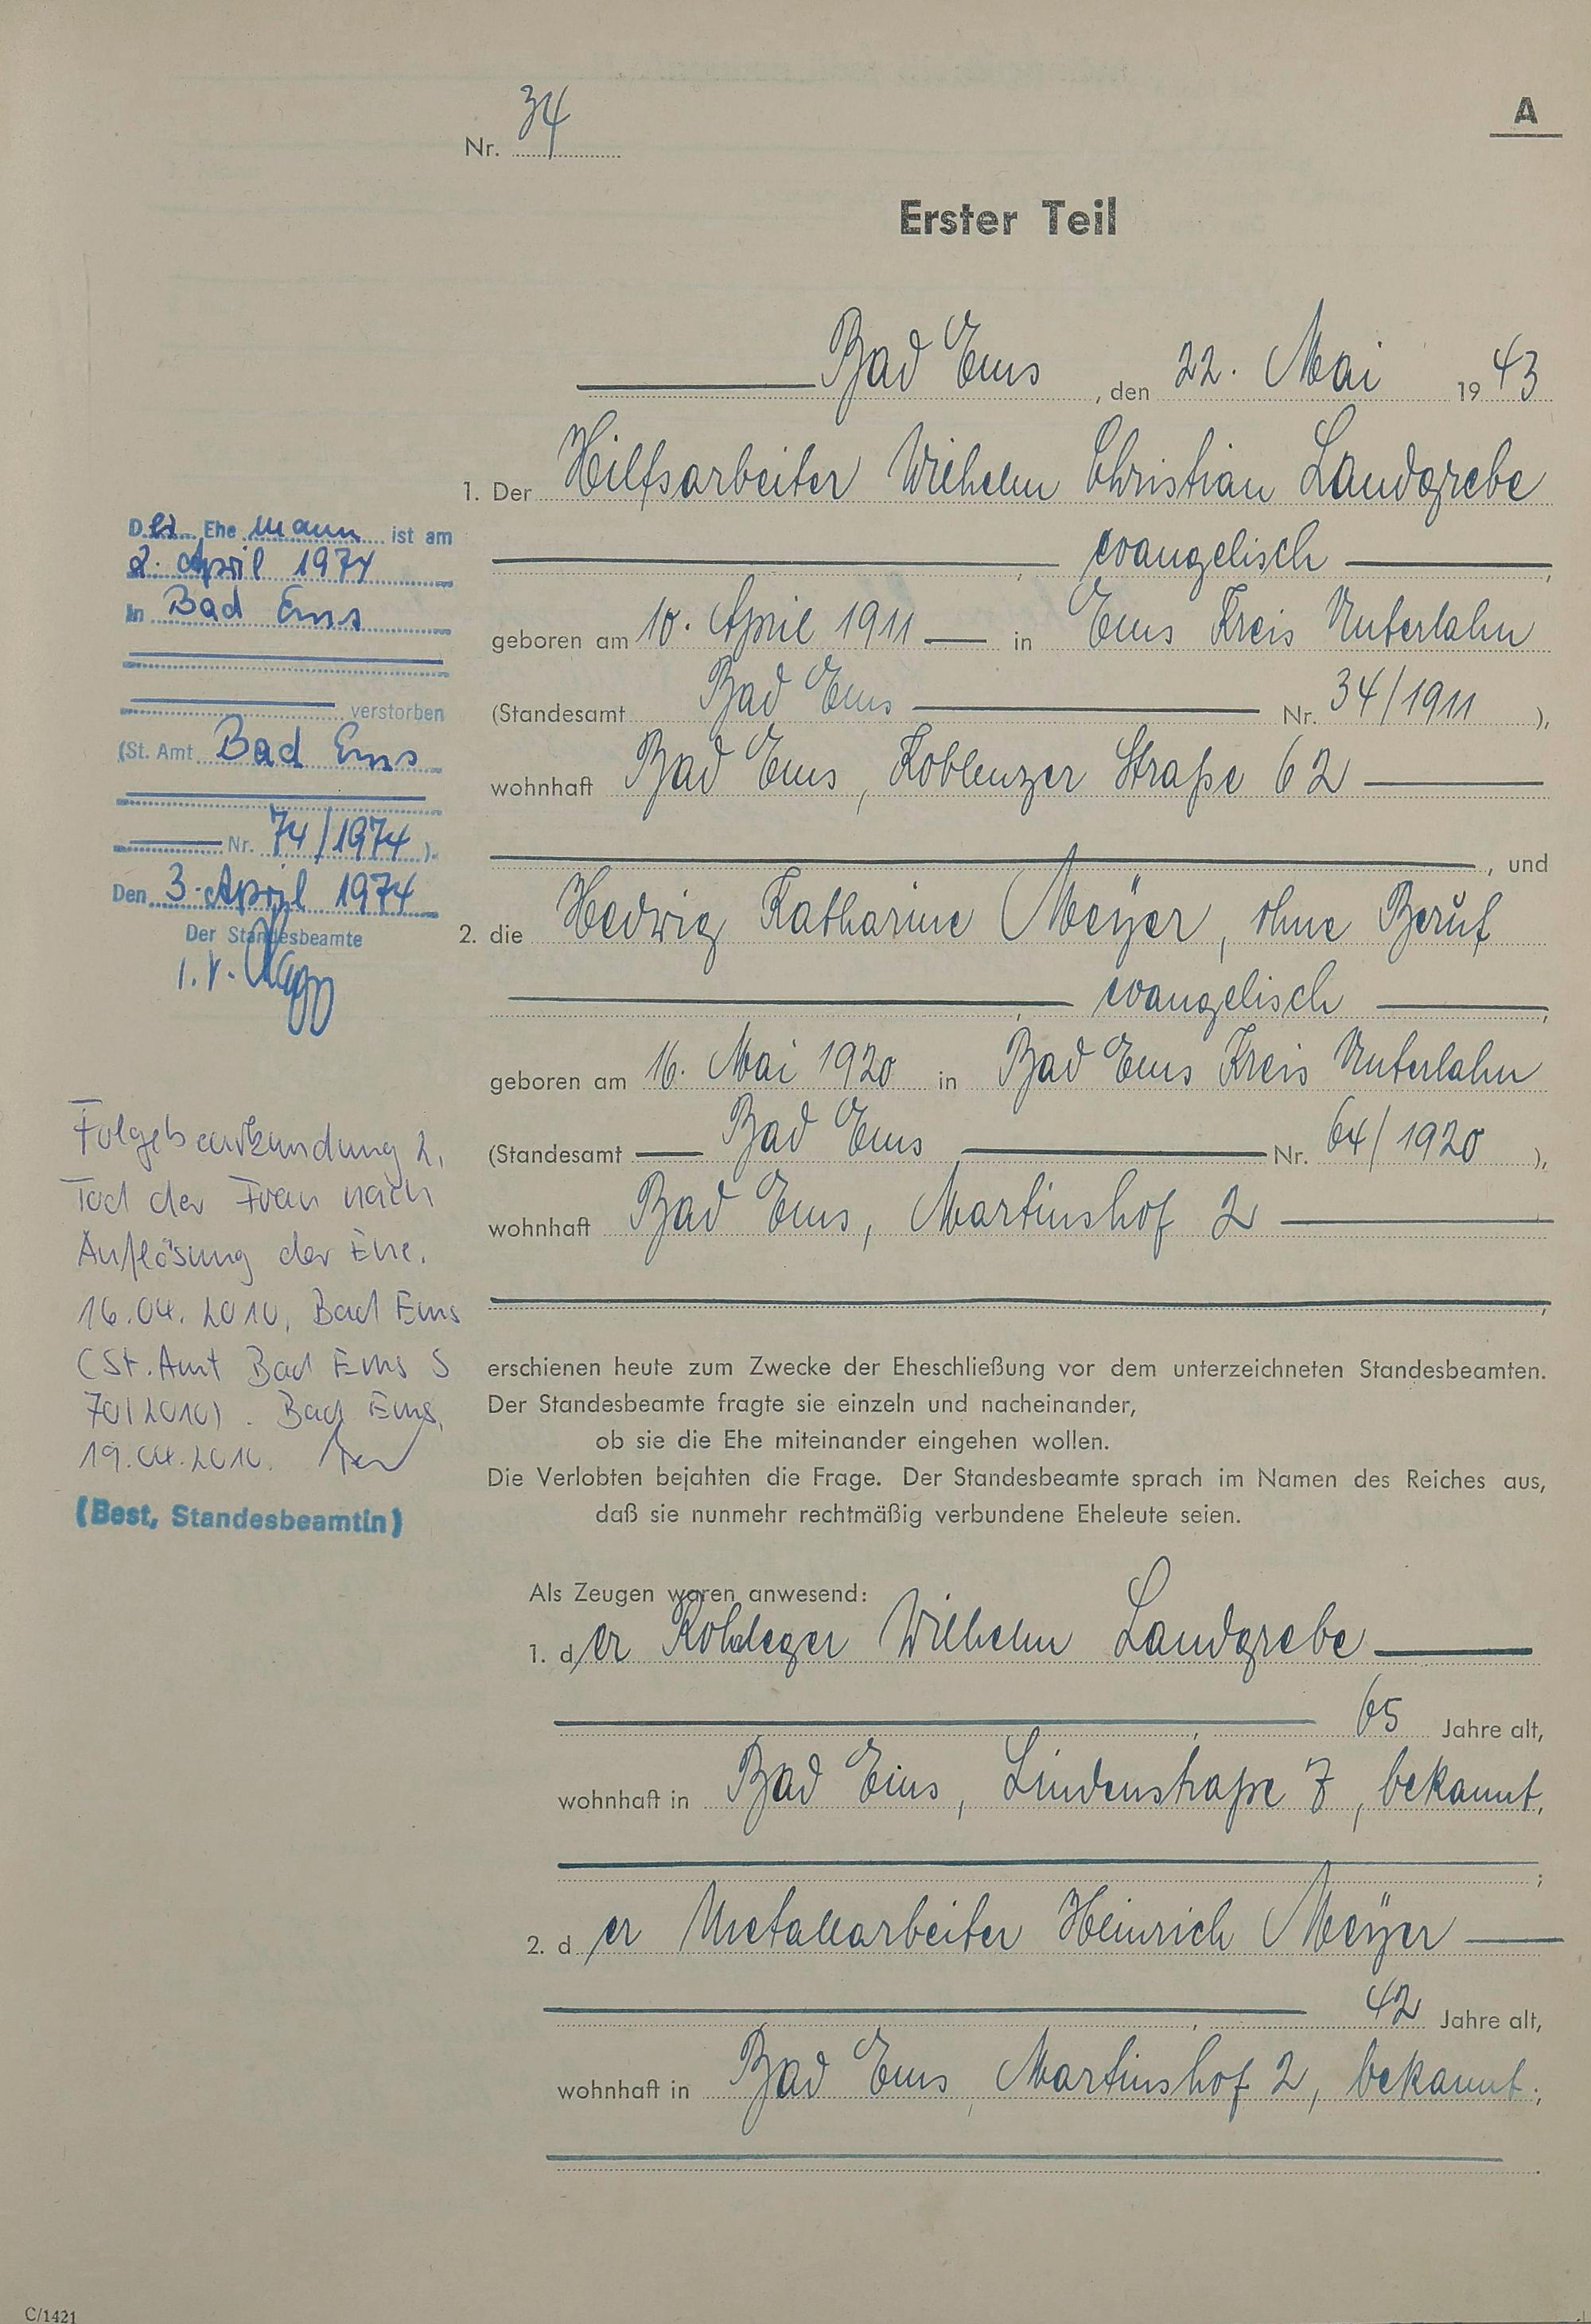 A
Nr. 34
Erster Teil
Bad Ems, den 22. Mai 1943
1. Der Hilfsarbeiter Wilhelm Christian Landgrebe
, evangelisch,
geboren am 10. April 1911 in Ems Kreis Unterlahn
(Standesamt Bad Ems Nr. 34/1911),
wohnhaft Bad Ems, Koblenzer Straße 62
, und
2. die Hedwig Katharine Meÿer, ohne Beruf
, evangelisch,
geboren am 16. Mai 1920 in Bad Ems Kreis Unterlahn
(Standesamt Bad Ems Nr. 64/1920),
wohnhaft Bad Ems, Martinshof 2
,
erschienen heute zum Zwecke der Eheschließung vor dem unterzeichneten Standesbeamten.
Der Standesbeamte fragte sie einzeln und nacheinander,
ob sie die Ehe miteinander eingehen wollen.
Die Verlobten bejahten die Frage. Der Standesbeamte sprach im Namen des Reiches aus,
daß sie nunmehr rechtmäßig verbundene Eheleute seien.
Als Zeugen waren anwesend:
1. der Wilhelm Landgrebe
, 65 Jahre alt,
wohnhaft in Bad Ems, Lindenstraße 7, bekannt,
;
2. der Metallarbeiter Heinrich Meÿer
, 42 Jahre alt,
wohnhaft in Bad Ems, Martinshof 2, bekannt,
.
Der Ehemann ist am
2. April 1974
in Bad Ems
verstorben
(St. Amt Bad Ems
Nr. 74/1974).
Den 3. April 1974
Der Standesbeamte
i.V.
Folgebeurkundung 2,
Tod der Frau nach
Auflösung der Ehe.
16.04.2010, Bad Ems
(St.Amt Bad Ems S
70/2010). Bad Ems,
19.04.2010.
(Best, Standesbeamtin)
C/1421